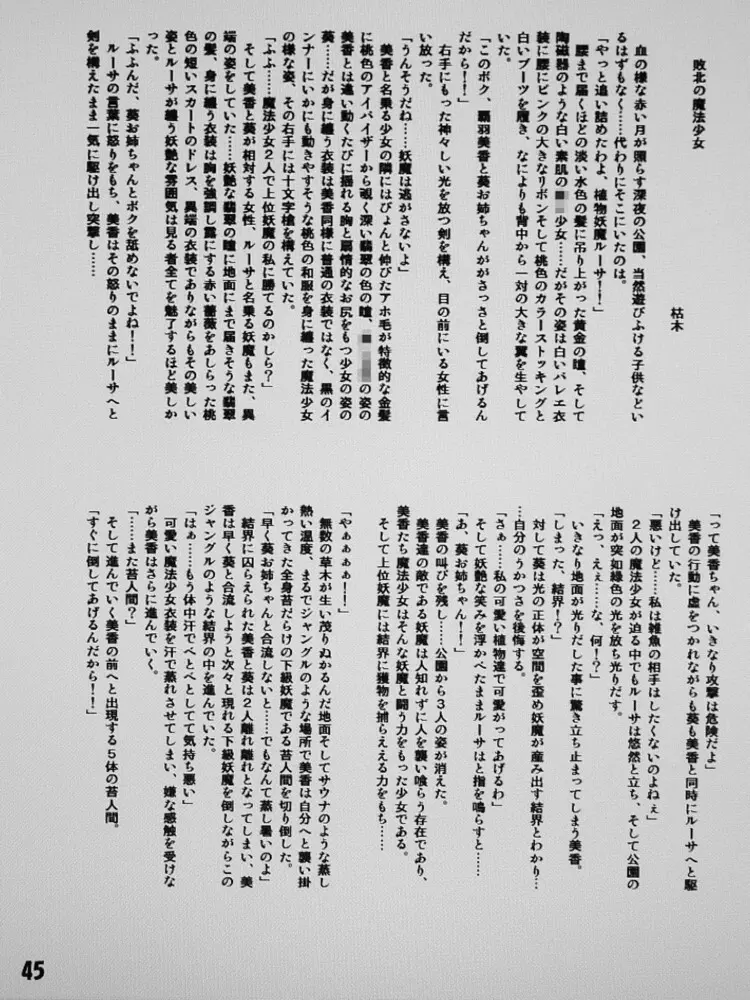 敗北の魔法少女
枯木
血の様な赤い月が照らす深夜の公園、当然遊びふける子供などい
るはずもなく……代わりにそこにいたのは。
「やっと追い詰めたわよ、植物妖魔ルーサ！！」
腰まで届くほどの淡い水色の髪に吊り上がった黄金の瞳、そして
陶磁器のような白い素肌の 少女……だがその姿は白いバレエ衣
装に腰にピンクの大きなリボンそして桃色のカラーストッキングと
白いブーツを履き、なによりも背中から一対の大きな翼を生やして
いた。
「このボク、覇羽美香と葵お姉ちゃんががさっさと倒してあげるん
だから！！」
右手にもった神々しい光を放つ剣を構え、目の前にいる女性に言
い放った。
「うんそうだね……妖魔は逃がさないよ」
美香と名乗る少女の隣にはぴょんと伸びたアホ毛が特徴的な金髪
に桃色のアイバイザーから覗く深い翡翠の色の瞳、 の姿の
葵……だが身に纏う衣装は美香同様に普通の衣装ではなく、黒のイ
ンナーにいかにも動きやすそうな桃色の和服を身に纏った魔法少女
の様な姿、その右手には十文字槍を構えていた。
「ふふ……魔法少女２人で上位妖魔の私に勝てるのかしら？」
そして美香と葵が相対する女性、ルーサと名乗る妖魔もまた、異
端の姿をしていた……妖艶な翡翠の瞳に地面にまで届きそうな翡翠
の髪、身に纏う衣装は胸を強調し露にする赤い薔薇をあしらった桃
色の短いスカートのドレス、異端の衣装でありながらもその美しい
姿とルーサが纏う妖艶な雰囲気は見る者全てを魅了するほど美しか
った。
「ふふんだ、葵お姉ちゃんとボクを舐めないでよね！！」
ルーサの言葉に怒りをもち、美香はその怒りのままにルーサへと
剣を構えたまま一気に駆け出し突撃し……
「って美香ちゃん、いきなり攻撃は危険だよ」
美香の行動に虚をつかれながらも葵も美香と同時にルーサへと駆
け出していた。
「悪いけど……私は雑魚の相手はしたくないのよねぇ」
２人の魔法少女が迫る中でもルーサは悠然と立ち、そして公園の
地面が突如緑色の光を放ち光りだす。
「えっ、えぇ……な、何！？」
いきなり地面が光りだした事に驚き立ち止まってしまう美香。
「しまった、結界！？」
対して葵は光の正体が空間を歪め妖魔が産み出す結界とわかり…
…自分のうかつさを後悔する。
「さぁ……私の可愛い植物達で可愛がってあげるわ」
そして妖艶な笑みを浮かべたままルーサはと指を鳴らすと……
「あ、葵お姉ちゃん！！」
美香の叫びを残し……公園から３人の姿が消えた。
美香達の敵である妖魔は人知れずに人を襲い喰らう存在であり、
美香たち魔法少女はそんな妖魔と闘う力をもった少女である。
そして上位妖魔には結界に獲物を捕らえる力をもち……
「やぁぁぁぁ！！」
無数の草木が生い茂りぬかるんだ地面そしてサウナのような蒸し
熱い温度、まるでジャングルのような場所で美香は自分へと襲い掛
かってきた全身苔だらけの下級妖魔である苔人間を切り倒した。
「早く葵お姉ちゃんと合流しないと……でもなんて蒸し暑いのよ」
結界に囚らえられた美香と葵は２人離れ離れとなってしまい、美
香は早く葵と合流しようと次々と現れる下級妖魔を倒しながらこの
ジャングルのような結界の中を進んでいた。
「はぁ……もう体中汗でべとべとしてて気持ち悪い」
可愛い魔法少女衣装を汗で蒸れさせてしまい、嫌な感触を受けな
がら美香はさらに進んでいく。
「……また苔人間？」
そして進んでいく美香の前へと出現する５体の苔人間。
「すぐに倒してあげるんだから！！」
45